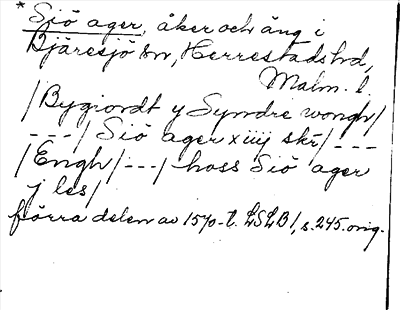 * Sjö ager, åker och äng i
Bjäresjö sn, Herrestads hd,
Malm. l.
/Bygiordt y Syndre wongh/
---/ Siö ager xiiij skr/ ---
/Engh/ ---/ hoss Siö ager
j les/
förra delen av 1570-t. LSLB I, s. 245. orig.